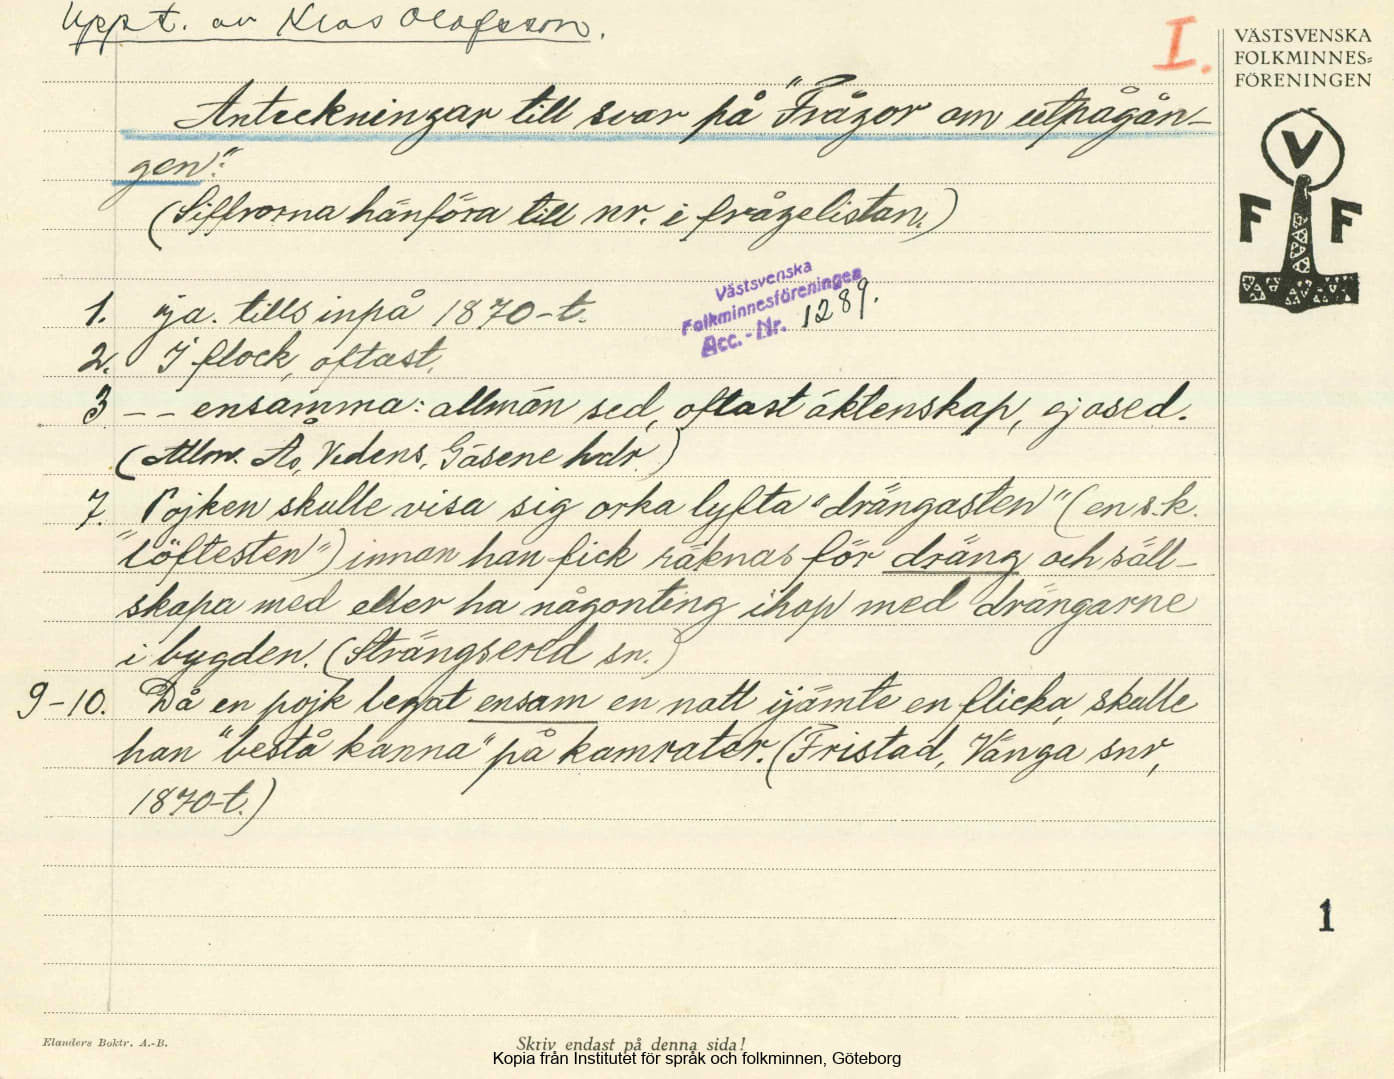 Uppt. av Klas Olofsson.
I.
VÄSTSVENSKA
FOLKMINNES-
FÖRENINGEN
V
F F
Anteckningar till svar på "Frågor om utpågån-
gen":
(Siffrorna hänföra till nr. i frågelistan.)
Västsvenska
Folkminnesföreningen
Acc.-Nr. 1289.
1. ja. tills inpå 1870-t.
2. I flock, oftast.
3 - - ensamma: allmän sed, oftast äktenskap, ej osed.
(Allm. Ås, Vedens, Gäsene hdr.)
7. Pojken skulle visa sig orka lyfta "drängasten" (en s.k.
"löftesten") innan han fick räknas för dräng och säll-
skapa med eller ha någonting ihop med drängarne
i bygden. (Strängsered sn.)
9-10. Då en pojk legat ensam en natt jämte en flicka, skulle
han "bestå kanna" på kamrater. (Fristad, Vånga snr,
1870-t.)
1
Elanders Boktr. A.-B.
Skriv endast på denna sida!
Kopia från Institutet för språk och folkminnen, Göteborg